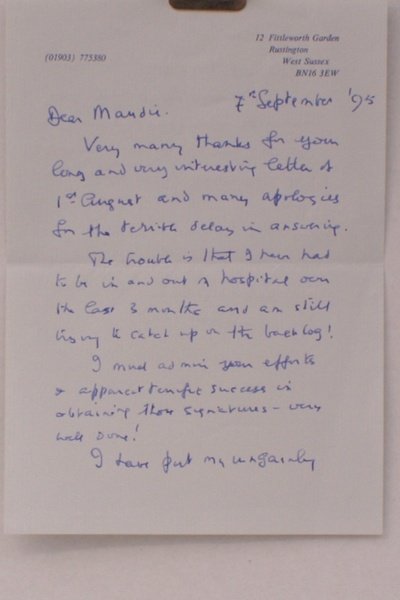 12 Fittleworth Garden
Rustington
West Sussex
BN16 3EW
(01903) 775380
7th September '95
Dear Mandie.
Very many thanks for your
long and very interesting letter of
1st August and many apologies
for the terrible delay in answering.
The trouble is that I have had
to be in and out of hospital over
the last 3 months and am still
trying to catch up on the backlog!
I must admire your efforts
& apparent terrific success in
obtaining those signatures - very
well done!
I have put my ungainly